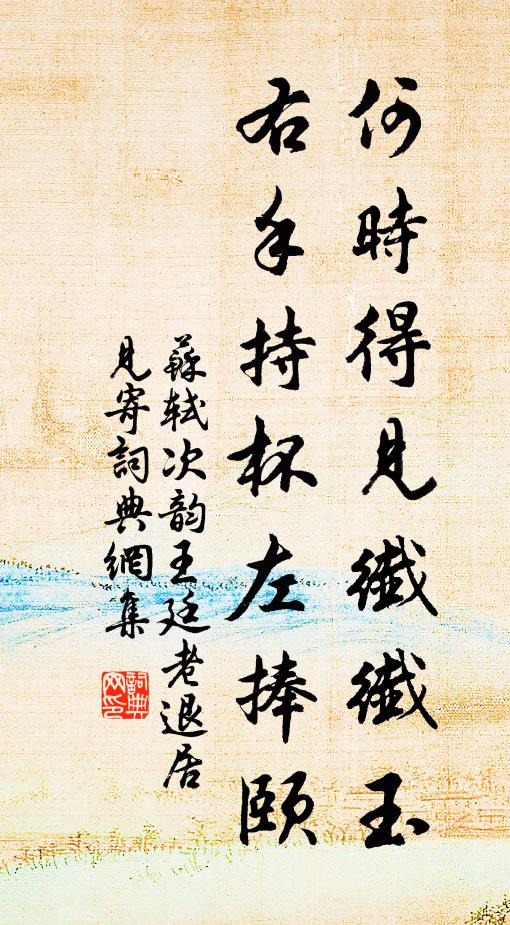 何時得見纖纖玉
右手持杯左捧頤
蘇軾次韵王廷老退居
見寄詞典網集
詞典
网印